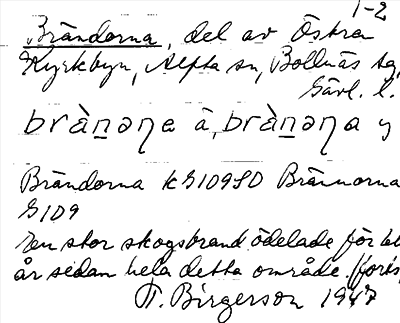 1-2
Brändorna, del av Östra
Kyrkbyn, Alfta sn, Bollnäs tg,
Gävl. l.
brànəɳe ä, brànəɳa y
Brändorna KG109SO Brännorna
G109
En stor skogsbrand ödelade för
år sedan hela detta område.
T. Birgerson 1947